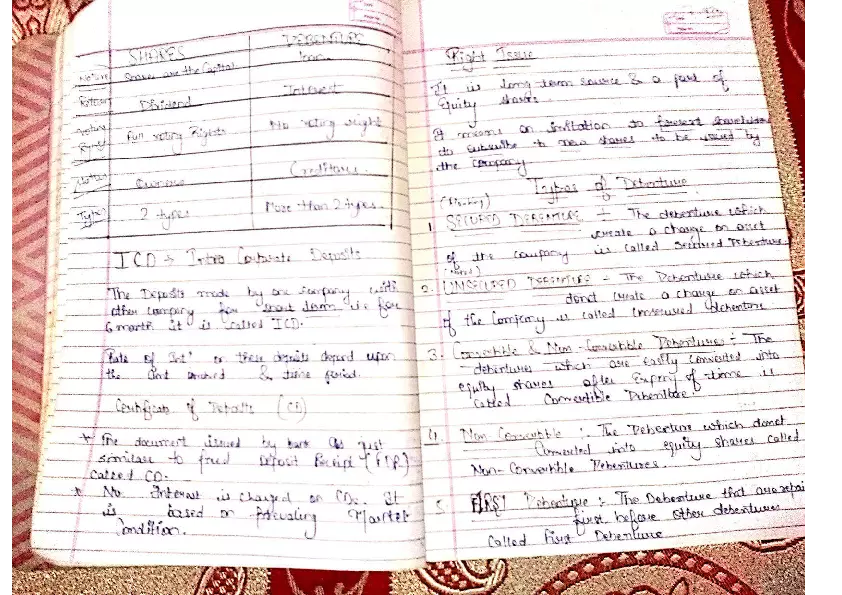 SHARES DEBENTURE
Nature Shares are the Capital loan
Return Dividend Interest
Voting Right Full voting Rights No voting right
Status Owners Creditors
Type 2 types More than 2 types
ICD → Intra Corporate Deposits
The Deposits made by one company with
other company for short term i.e for
6 month it is called ICD.
Rate of Int' on these deposits depend upon
the Amt & time period.
Certificate of Deposits (CD)
* The document issued by bank just
similar to fixed Deposit Receipt (FDR)
called CD.
* No Interest is charged on CDs. It
is based on Prevailing Market
Condition.
Right Issue
It is long term source & a part of
Equity shares.
It means an invitation to present shareholders
to subscribe to new shares to be issued by
the company
Types of Debenture
1. SECURED DEBENTURE :- The debenture which
create a charge on asset
of the company is called Secured Debenture
2. UNSECURED DEBENTURE - The Debenture which
donot create a charge on asset
of the Company is called Unsecured debenture
3. Convertible & Non-Convertible Debentures :- The
debentures which are easily converted into
equity shares after Expiry of time is
called Convertible Debenture.
4. Non Convertible : The Debenture which donot
Converted into equity shares called
Non-Convertible Debentures.
5. FIRST Debenture :- The Debenture that are repai
first before other debentures
called first Debenture